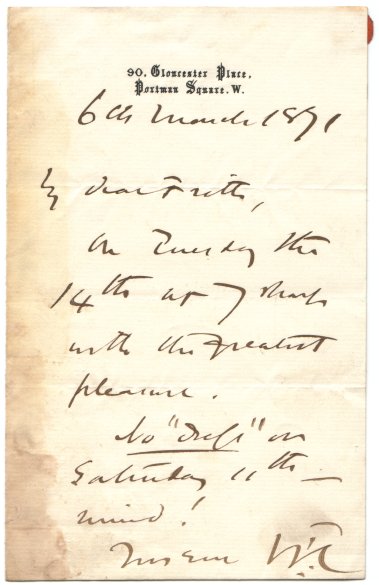 90. Gloucester Place,
Portman Square. W.
6th March 1871
My dear Frith,
On Tuesday the
14th at 7 sharp
with the greatest
pleasure.
No "dress" on
Saturday 11th —
mind!
Yours ever WC